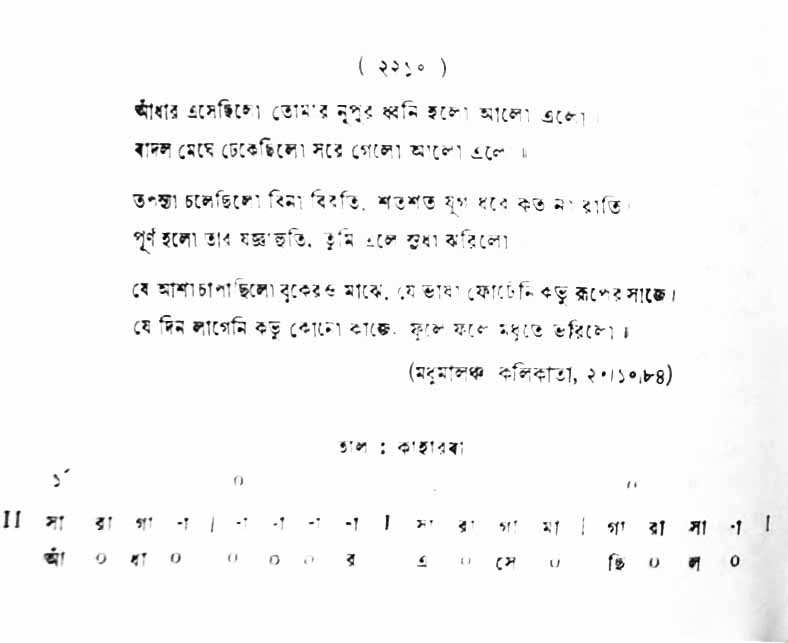 ( ২২১০ )
আঁধার এসেছিলো তোমার নূপুর ধ্বনি হলো আলো এলো ।
বাদল মেঘে ঢেকেছিলো সরে গেলো আলো এলো ॥
তপস্যা চলেছিলো বিনা বিরতি, শতশত যুগ ধরে কত না রাতি ।
পূর্ণ হলো তার যজ্ঞাহুতি, তুমি এলে সুধা ঝরিলো
যে আশা চাপা ছিলো বুকেরও মাঝে, যে ভাষা ফোটেনি কভু রূপের সাজে ।
যে দিন লাগেনি কভু কোনো কাজে, ফুলে ফলে মধুতে ভরিলো ॥
(মধুমালঞ্চ কলিকাতা, ২০।১০।৮৪)
তাল : কাহারবা
১´ ০ ০
II সা রা গা -া | -া -া -া -া | সা রা গা মা | গা রা সা -া |
আঁ ০ ধা ০ ০ ০ ০ র এ ০ সে ০ ছি ০ ল ০